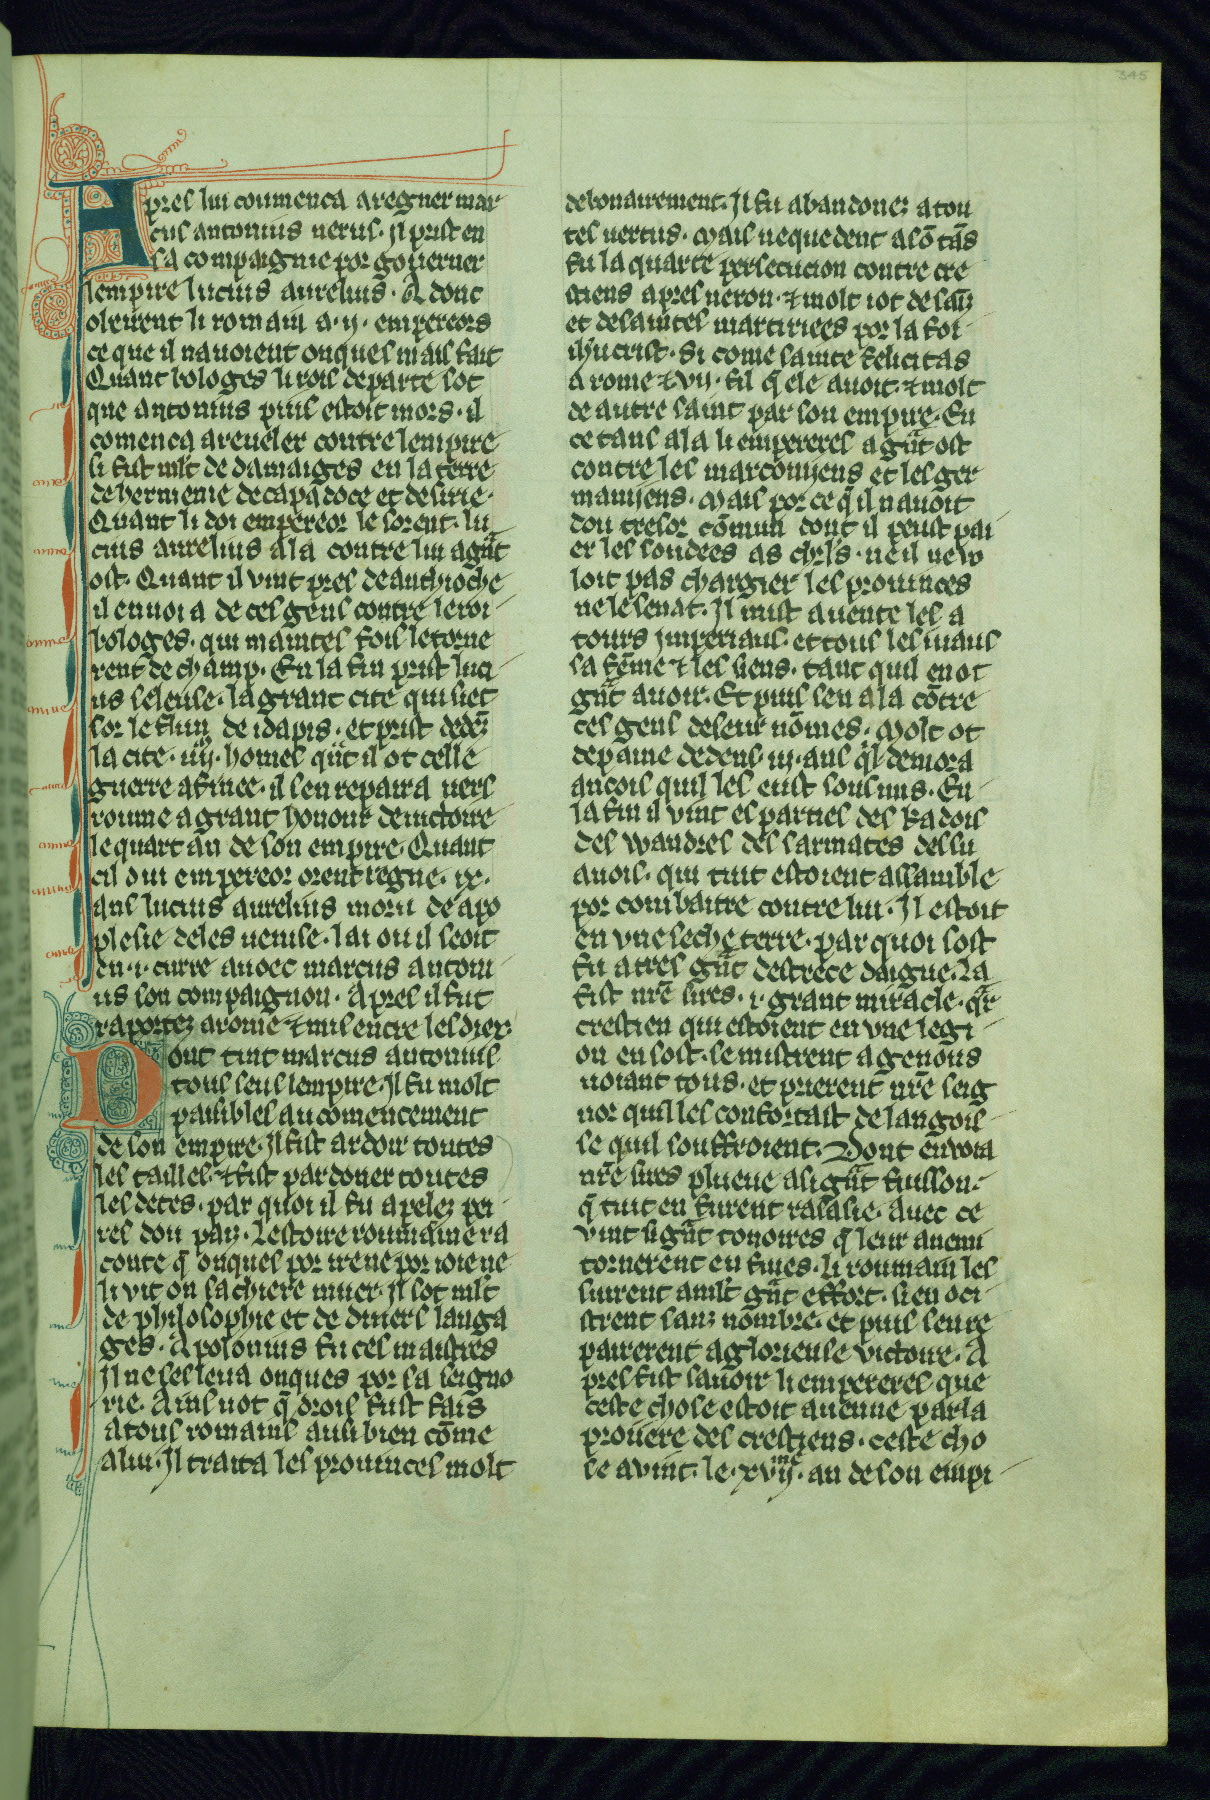 345
Apres lui coumenca a regner mar
cus antonius uerus. Il prist en
sa compaignie por gouerner
lempire lucius aurelius. A donc
olrirent li romain a .ij. empereors
ce que il nauoient onques mais fait
Quant bologes li rois de parte sot
que antonius pius estoit mors. il
comenca a reueler contre lempire
si fist ml't de damaiges en la terre
de hermenie de capadoce et de sirie.
Quant li doi empereor le sorent. lu
cius aurelius ala contre lui a gñt
ost. Quant il vint pres de anthioche
il enuoia de ces gens contre le roi
bologes. qui maintes fois le torne
rent de champ. En la fin prist luci
us seleuse. la grant cite qui siet
sor le flun de idapis. et prist dedēs
la cite .iiij. homes qñt il ot celle
guerre afinee. il sen repaira uers
roume a grant honour de uictoire
le quart an de son empire. Quant
cil dui empereor orent regne .ix.
ans lucius aurelius moru de apo
plesie deles uenise. lai ou il seoit
en .i. curre auoec marcus antoni
us son compaignon. Apres il fut
raportez a rome ⁊ mis entre les diex
Dont tint marcus antonius
tous seus lempire. Il fu molt
paisibles au comencement
de son empire. Il fist ardoir toutes
les tailles. ⁊ fist pardoner toutes
les detes. par quoi il fu apelez pe
res dou pais. Lestoire roumaine ra
conte q̄ onques por ire ne por ioie ne
li vit on sa chiere muer. Il sot ml't
de philosophie et de diuers langa
ges. Apolonius fu ces maistres
Il ne sesleua onques por sa seigno
rie. Ains uot q̄ drois fust fais
a tous romains ausi bien cōme
a lui. Il traita les prouinces molt
debonairement. Il fu abandonez a tou
tes uertus. Mais nequedent a sō tās
fu la quarte persecucion contre cre
stiens apres neron. ⁊ molt i ot de sains
et de saintes martiriees por la foi
ihucrist. Si come sainte felicitas
a rome ⁊ vij. fil q̄ ele auoit. ⁊ molt
de autre saint par son empire. En
ce tans ala li empereres a gñt ost
contre les marconijens et les ger
manijens. Mais por ce q̄ il nauoit
dou tresor cōmun dont il peust pai
er les soudees as chrls. ne il ne vo
loit pas chargier les prouinces
ne le senat. Il mist a uente les a
tours imperiaus. et tous les iuaus
sa fēme ⁊ les siens. tant quil en ot
gñt auoir. Et puis sen ala cōtre
ces gens deseur nōmes. Molt ot
de paine dedens .iij. ans q̄l demora
ancois quil les eust sousmis. En
la fin il vint es parties des kadois
des wandres des sarmates des su
auois. qui tuit estoient assamble
por combaitre contre lui. Il estoit
en vne seche terre. par quoi sost
fu a tres gñt destrece daigue. La
fist nr̄e sires .i. grant miracle. qr̄
crestien qui estoient en vne legi
on en lost. se mistrent a genous
uoiant tous. et prierent nr̄e seig
nor quil les confortast de langois
se quil souffroient. Dont enuoia
nr̄e sires plueue a si gñt fuisson.
q̄ tuit en furent rasasie. Auec ce
vint si gñt tonoires q̄ leur anemi
tornerent en fuies. li roumain les
suirent a ml't gñt effort. si en oci
strent sanz nombre. et puis se re
pairerent a glorieuse victoire. A
pres fist sauoir li empereres que
ceste chose estoit auenue par la
proiere des crestiens. ceste cho
se avint. le .xvijme. an de son empi